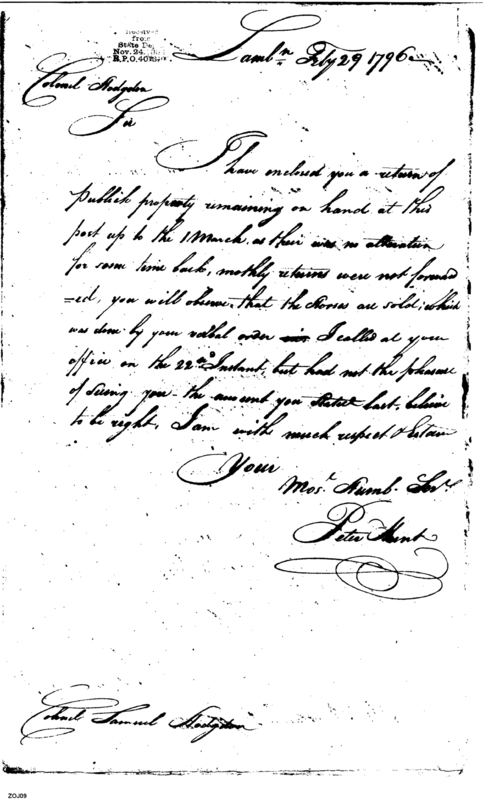 Received
from
State De
Nov. 24
R.P.O. 40
Lambn. Feby 29 1796
Colonel Hodgdon
Sir
I have enclosed you a return of
Publick property remaining on hand at this
post up to the 1 March, as their was no alteration
for some time back, mothly returns were not forward
=ed, you will observe, that the Horses are sold; which
was done by your verbal order I called at your
office on the 22nd Instant, but had not the pleasure
of Seeing you - the amount you last, believe
to be right, I am with much respect & Esteem
Your
Most. Humb. Servt.
Peter Hunt
Colonel Samuel Hodgdon
ZOJ09